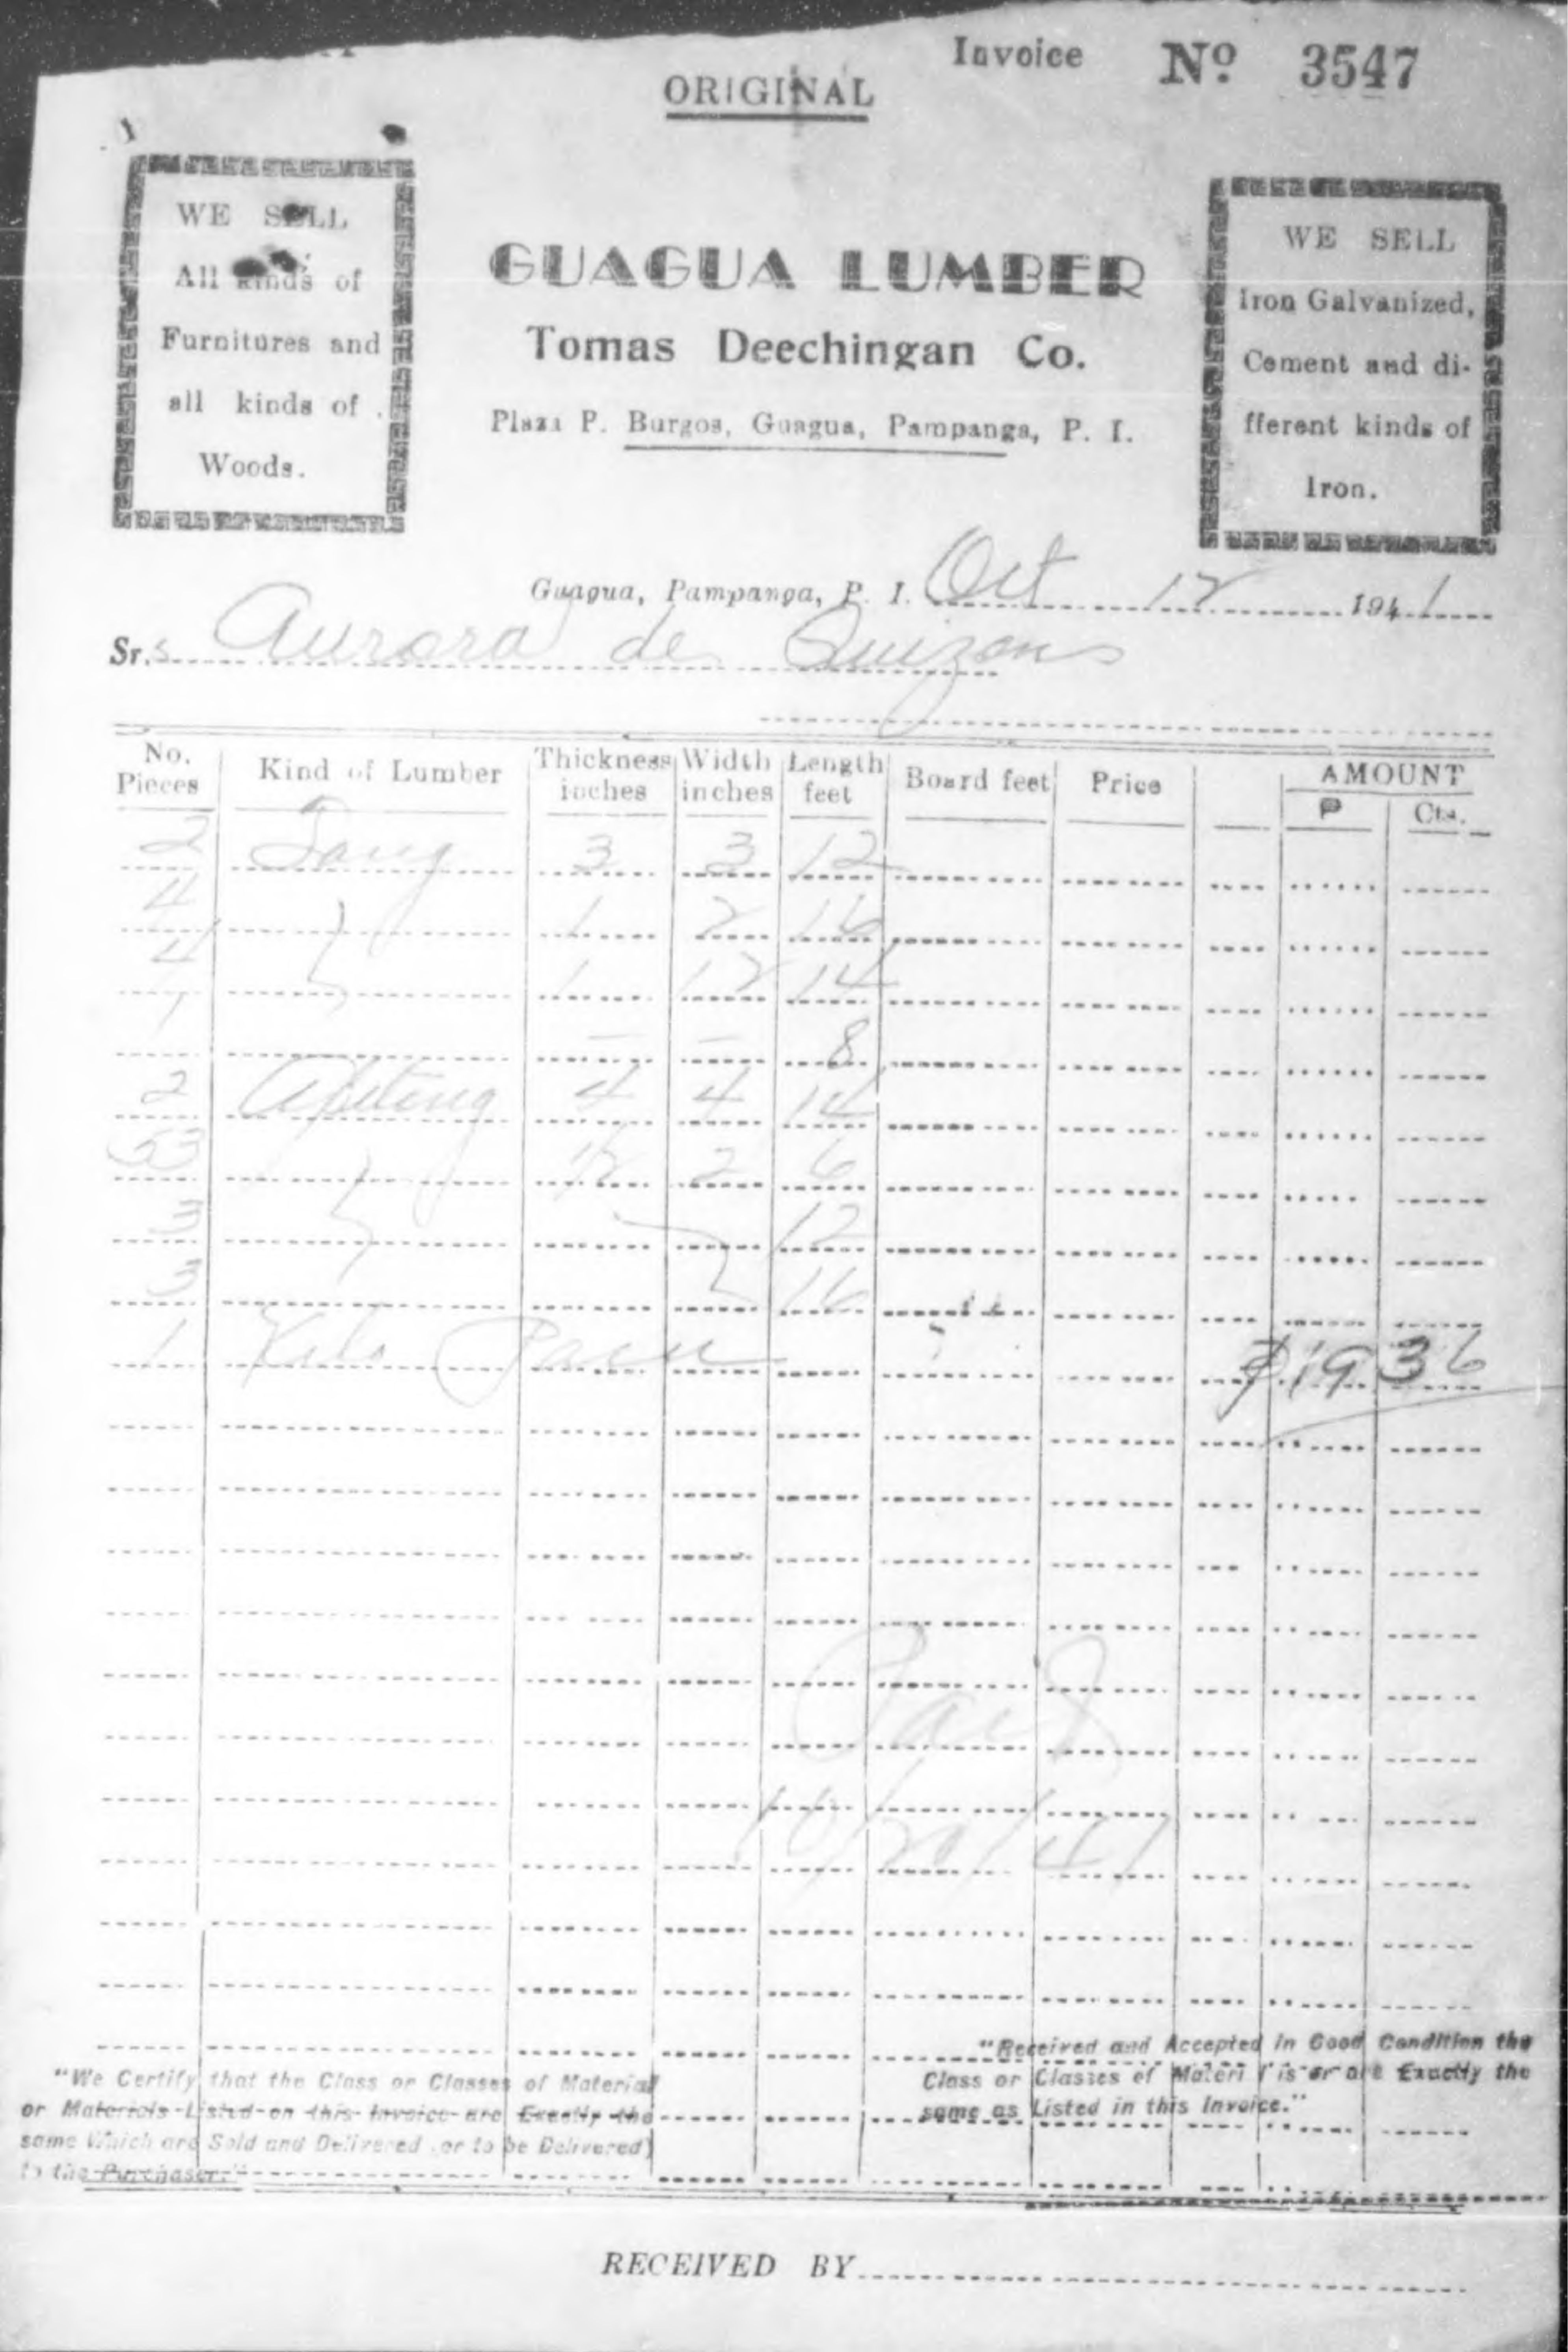 Invoice Nº 3547
ORIGINAL
WE SELL
All kinds of
Furnitures and
all kinds of
Woods.
GUAGUA LUMBER
Tomas Deechingan Co.
Plaza P. Burgos, Guagua, Pampanga, P. I.
WE SELL
Iron Galvanized,
Cement and di-
fferent kinds of
Iron.
Guagua, Pampanga, P. I. Oct 12 1941
Sr.s Aurora de Quizon
No. Pieces Kind of Lumber Thickness inches Width inches Length feet Board feet Price AMOUNT
₱ Cts.
2 3 3 12
4 1 2 16
4 1 12 14
1 — — 8
2 Apitong 4 4 14
53 1/2 2 6
3 12
3 16
1 Kilo
₱19 36
Paid
10/20/41
"We Certify that the Class or Classes of Material
or Materials Listed on this Invoice are Exactly the
same Which are Sold and Delivered or to be Delivered)
to the Purchaser."
"Received and Accepted in Good Condition the
Class or Classes of Materi l is or are Exactly the
same as Listed in this Invoice."
RECEIVED BY